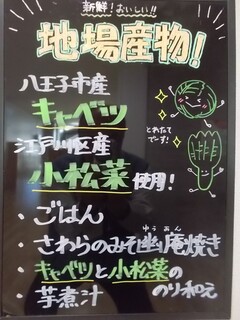 新鮮!おいしい!!
地場産物!
八王子市産
キャベツ
江戸川区産
小松菜使用!
とれたて
でーす!
・ごはん
・さわらのみそ幽庵焼き
ゆうあん
・キャベツと小松菜の
のり和え
・芋煮汁